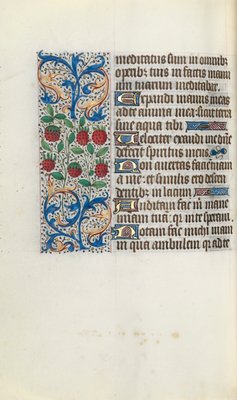 meditatus sum in omnib;
operib; tuis in factis manu
um tuarum meditabar.
Expandi manus meas
ad te anima mea sicut terra
sine aqua tibi
Velociter exaudi me dñe
defecit spiritus meus.
Non avertas faciem tuam
a me: et similis ero descen
dentib; in lacum
Auditam fac m mane
mam tuā: qȝ in te speravi.
Notam fac michi viam
in qua ambulem qȝ ad te